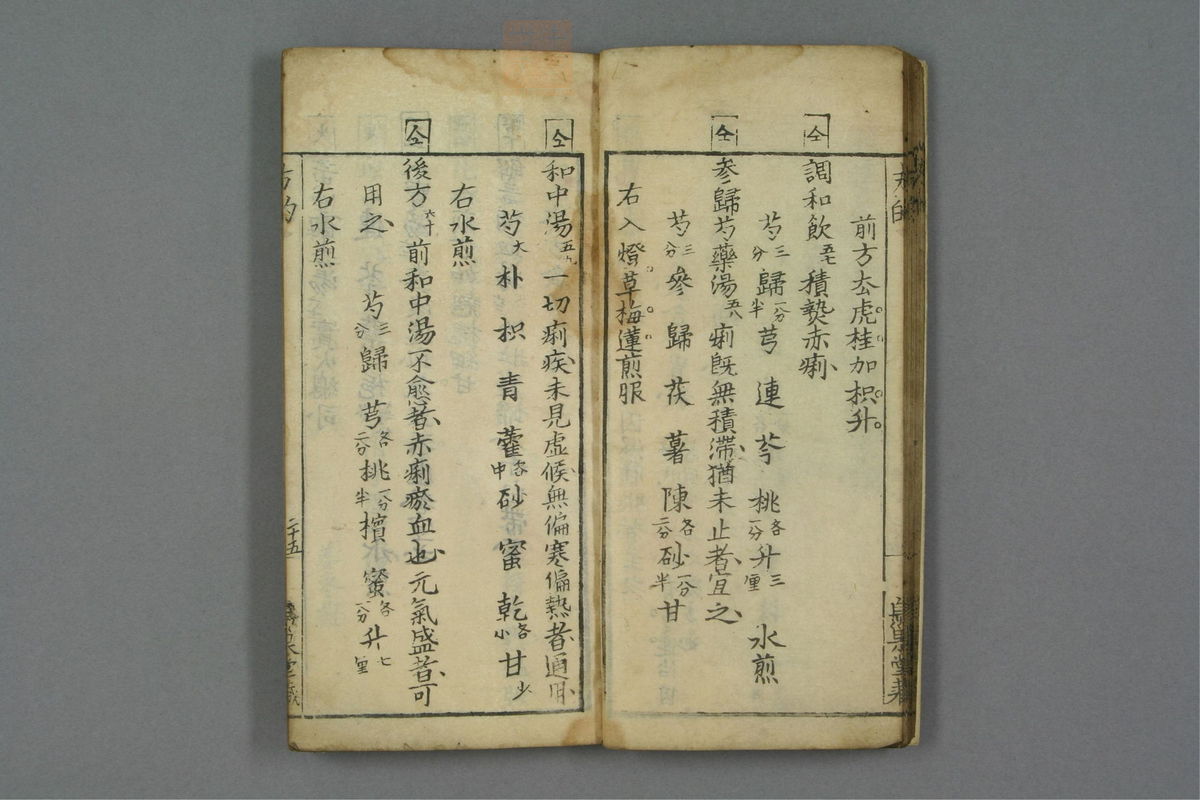 前方去虎桂加枳升
仝
調和飲五七積熱赤痢
芍三分歸一分半芎連芩桃各一分升三厘水煎
仝
參歸芍藥湯五八痢既無積滯猶未止者宜之
芍三分參歸茯薯陳各二分砂一分半甘
右入燈草梅蓮煎服
仝
和中湯五九一切痢疾未見虛候無偏寒偏熱者通用
芍大朴枳青藿各中砂蜜乾各小甘少
右水煎
仝
後方六十前和中湯不愈者赤痢瘀血也元氣盛者可
用之芍三分歸芎各二分桃一分半檳蜜各一分升七厘
右水煎
二十五